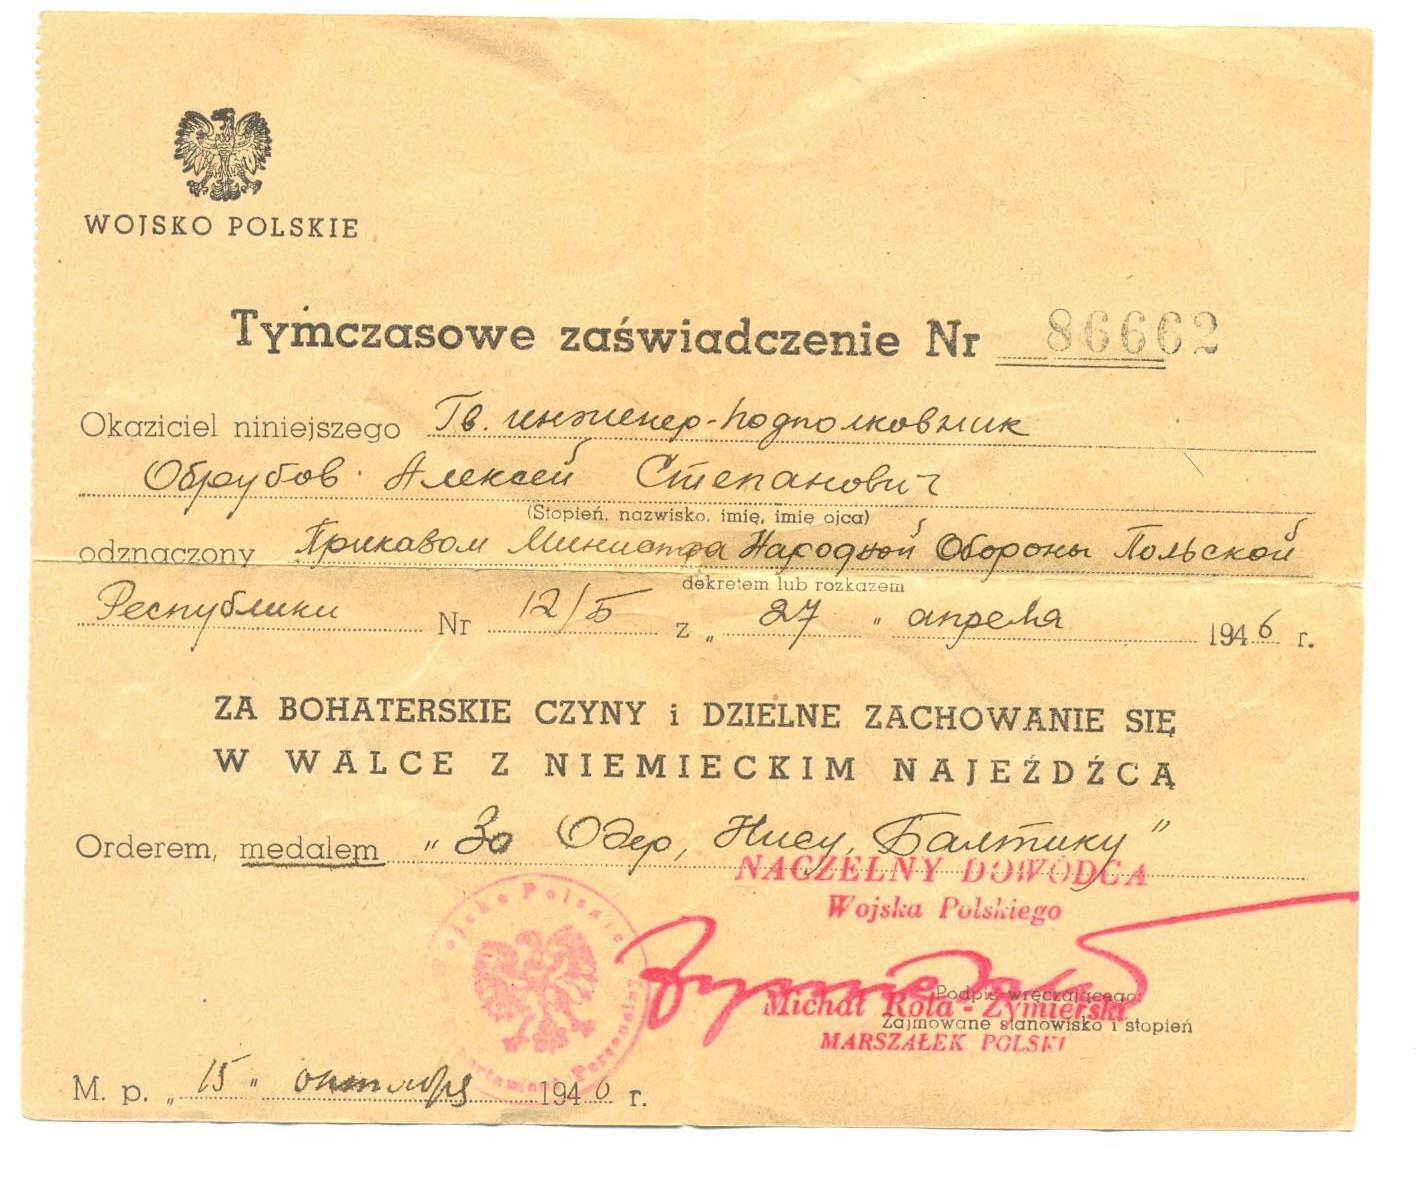 WOJSKO POLSKIE
Tymczasowe zaświadczenie Nr 86662
Okaziciel niniejszego Гв. инженер-подполковник
Обрубов Алексей Степанович
(Stopień, nazwisko, imię, imię ojca)
odznaczony Приказом Министра Народной Обороны Польской
dekretem lub rozkazem
Республики Nr 12/Б z „ 27 " апреля 1946 r.
ZA BOHATERSKIE CZYNY i DZIELNE ZACHOWANIE SIĘ
W WALCE Z NIEMIECKIM NAJEŹDŹCĄ
Orderem, medalem „За Одер, Нису, Балтику"
NACZELNY DOWÓDCA
Wojska Polskiego
Wojsko Polskie
Departament Personalny
Podpis wręczającego:
Michał Rola-Żymierski
Zajmowane stanowisko i stopień
MARSZAŁEK POLSKI
M. p. „ 15 " октября 1946 r.